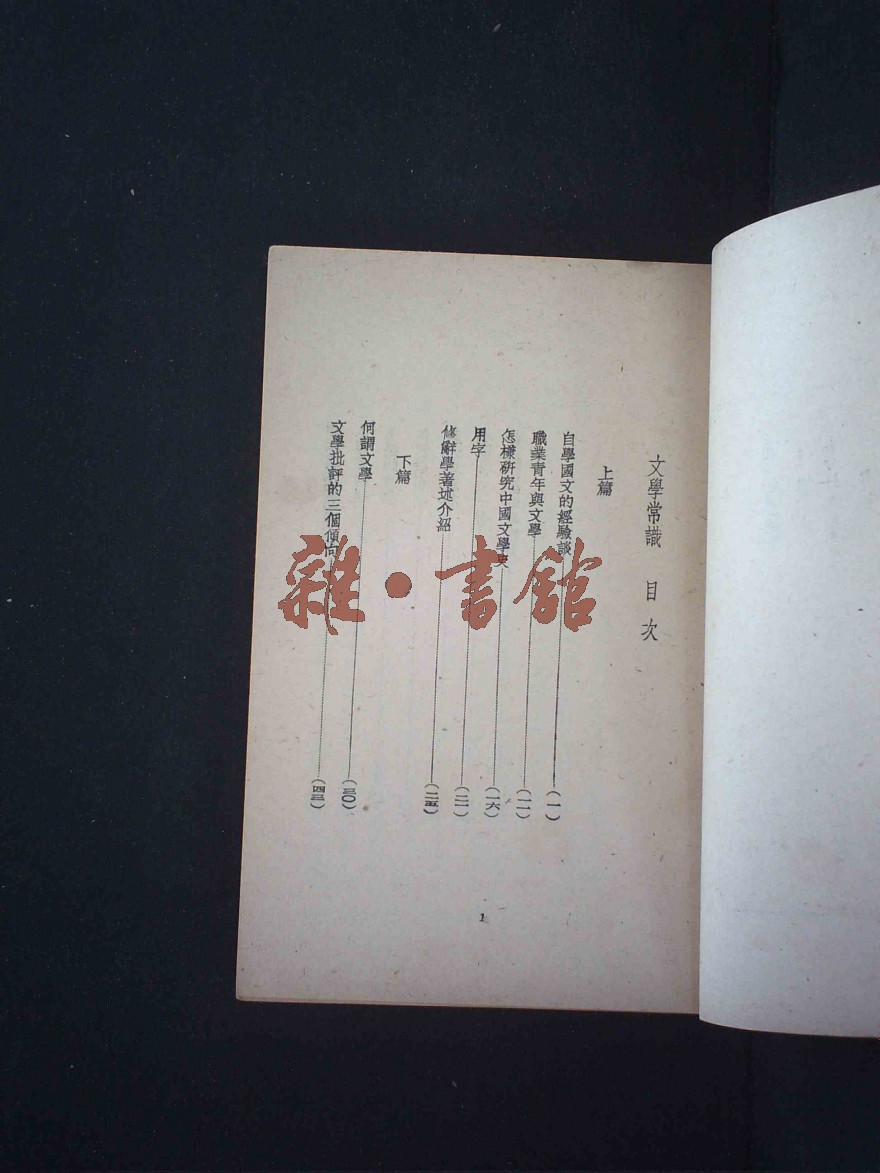 文學常識　目次
上篇
自學國文的經驗談(一)
職業青年與文學(一一)
怎樣硏究中國文學史(一六)
用字(二一)
修辭學著述介紹(二五)
下篇
何謂文學(三〇)
文學批評的三個傾向(四三)
1
雜·書館